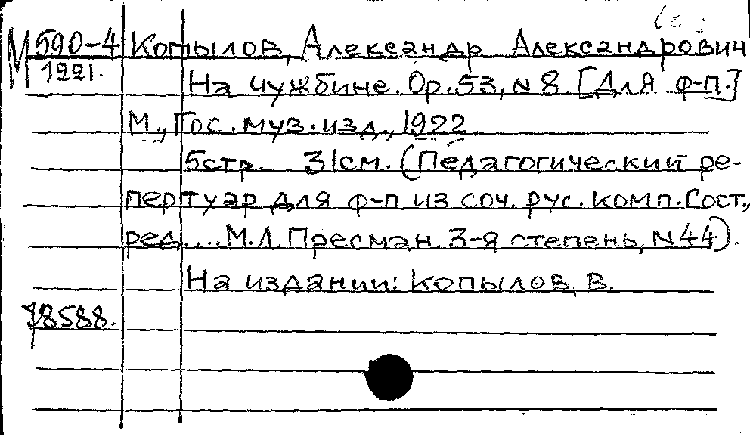 М 590-4 Копылов, Александр Александрович
1221. На чужбине. Ор.53, N 8. [Для ф-п.]
М., Гос. муз. изд., 1922
5стр. 31см. (Педагогический ре-
пертуар для ф-п из соч. рус. комп. Сост.,
ред.... М.Л. Пресман. 3-я степень, N44).
На издании: Копылов, В.
78588.